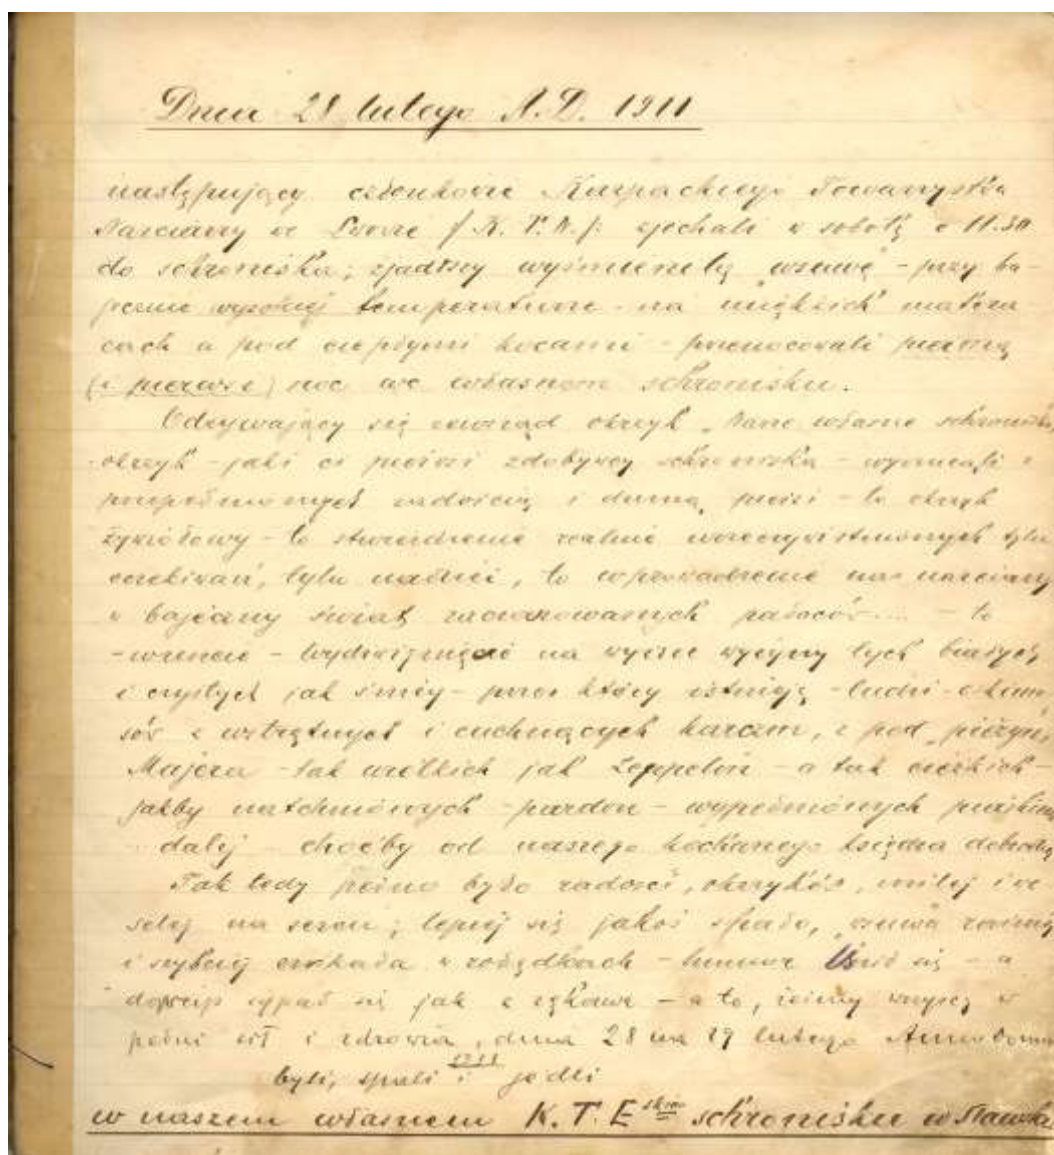 Dnia 28 lutego A.D. 1911
następujący członkowie Karpackiego Towarzystwa
Narciarzy we Lwowie /: K. T. N. :/ zjechali w sobotę o 11.30
do schroniska; zjadłszy wyśmienitą „wsuwę" - przy ba-
jecznie wysokiej temperaturze - na miękkich matera-
cach a pod ciepłymi kocami - przenocowali pierwszą
(i pierwsi) noc we własnem schronisku.
Odzywający się zewsząd okrzyk „Mamy własne schronisko"
okrzyk - jaki ci pierwsi zdobywcy schroniska - wyrzucali z
przepełnionych radością i dumą piersi - to okrzyk
żywiołowy - to stwierdzenie realnie urzeczywistnionych tylu
oczekiwań, tylu nadziei, to wprowadzenie nas narciarzy
w bajeczny świat zaczarowanych pałaców.... - to
- wreszcie - wydźwignięcie na wyższe wyżyny tych białych
i czystych jak śnieg - przez który istnieją - ludzi - eskimo-
sów z wstrętnych i cuchnących karczm, z pod „pierzyn"
Majera - tak wielkich jak Zeppelin - a tak ciężkich -
jakby natchniowych - pardon - wypełniowych piaskiem
- dalej - choćby od naszego kochanego księdza
Tak tedy pełno było radości, okrzyków, milej i we-
selej na sercu; lepiej się jakoś spało, „wsuwa"
i szybciej w żołądkach - humor się - a
dowcip sypał się jak z rękawa - a to, żeśmy wszyscy w
pełni sił i zdrowia, dnia 28 na 29 lutego Anno Domini
1911
byli, spali i jedli
w naszem własnem K. T. E schronisku w Sławsku